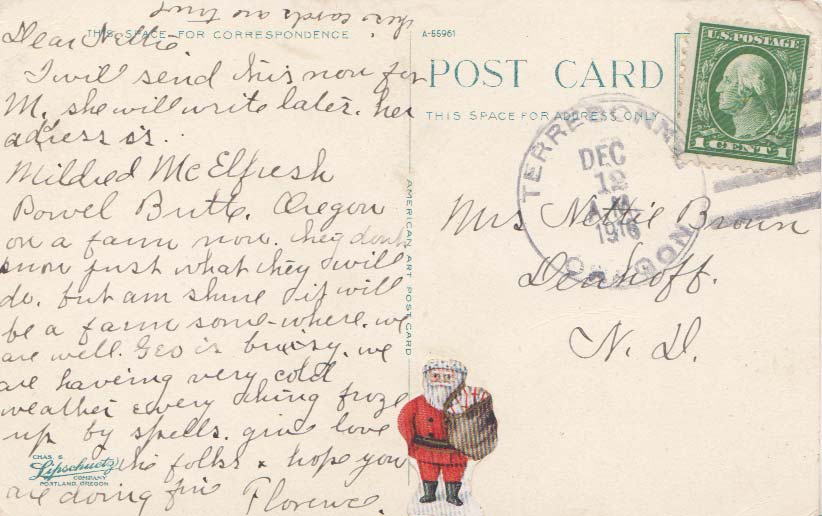 these cards are trust
THIS SPACE FOR CORRESPONDENCE
Dear Nettie
I will send this now for
M. she will write later. her
address is.
Mildred McElfresh
Powel Butte. Oregon
on a farm now. they dont
know just what they will
do. but am shure it will
be a farm some-where. we
are well. Geo is buisy. we
are having very cold
weather every thing froze
up by spells. give love
the folks & hope you
are doing fine Florence.
CHAS. S.
Lipschuetz
COMPANY
PORTLAND, OREGON
AMERICAN ART POST CARD
A-55961
POST CARD
THIS SPACE FOR ADDRESS ONLY
U.S. POSTAGE
1 CENT 1
TERREBONNE
DEC
12
A.M.
1916
OREGON
Mrs Nettie Brown
Denhoff.
N. D.